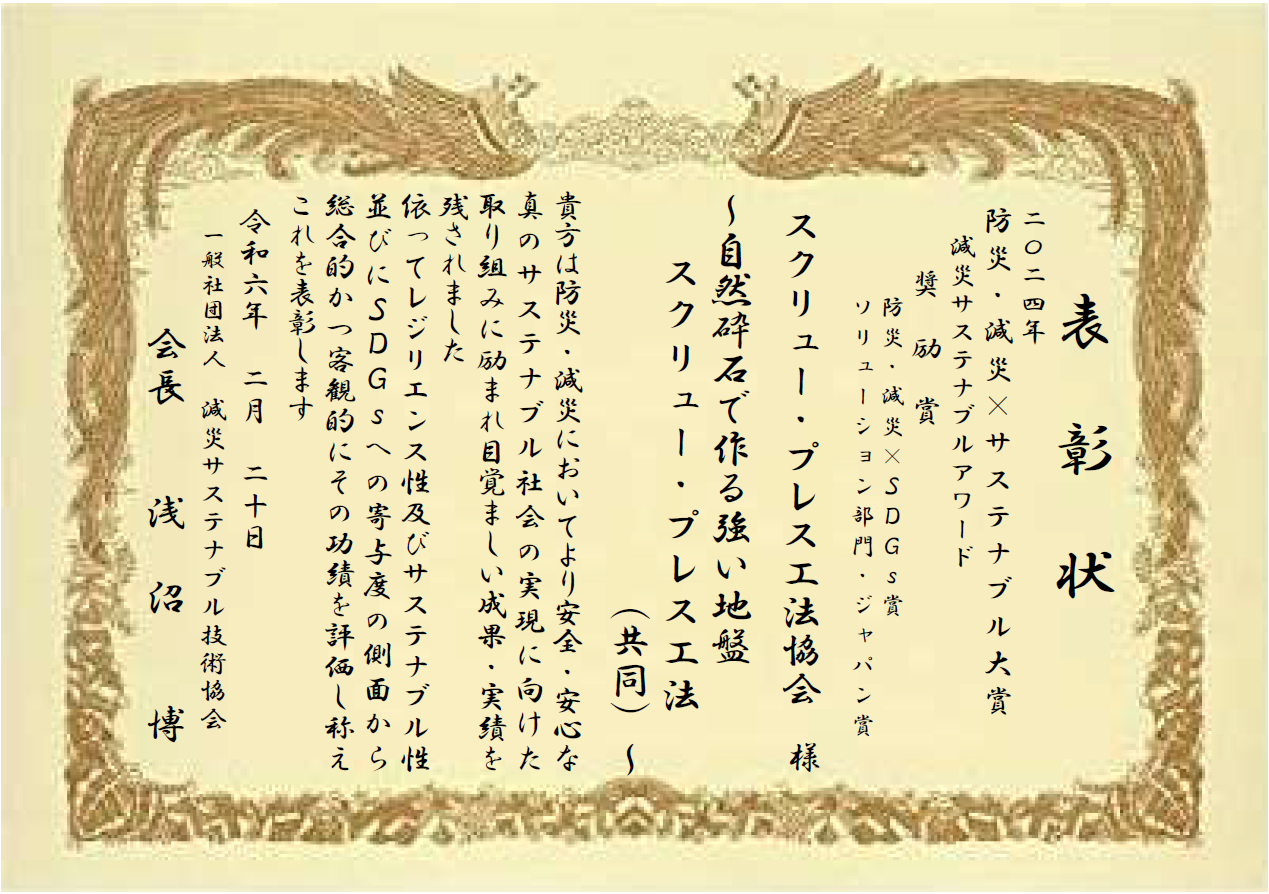 表彰状
二〇二四年
防災・減災×サステナブル大賞
減災サステナブルアワード
奨励賞
防災・減災×SDGs賞
ソリューション部門・ジャパン賞
スクリュー・プレス工法協会 様
～自然砕石で作る強い地盤
スクリュー・プレス工法
（共同）～
貴方は防災・減災においてより安全・安心な
真のサステナブル社会の実現に向けた
取り組みに励まれ目覚ましい成果・実績を
残されました
依ってレジリエンス性及びサステナブル性
並びにSDGsへの寄与度の側面から
総合的かつ客観的にその功績を評価し称え
これを表彰します
令和六年 二月 二十日
一般社団法人 減災サステナブル技術協会
会長 浅沼 博